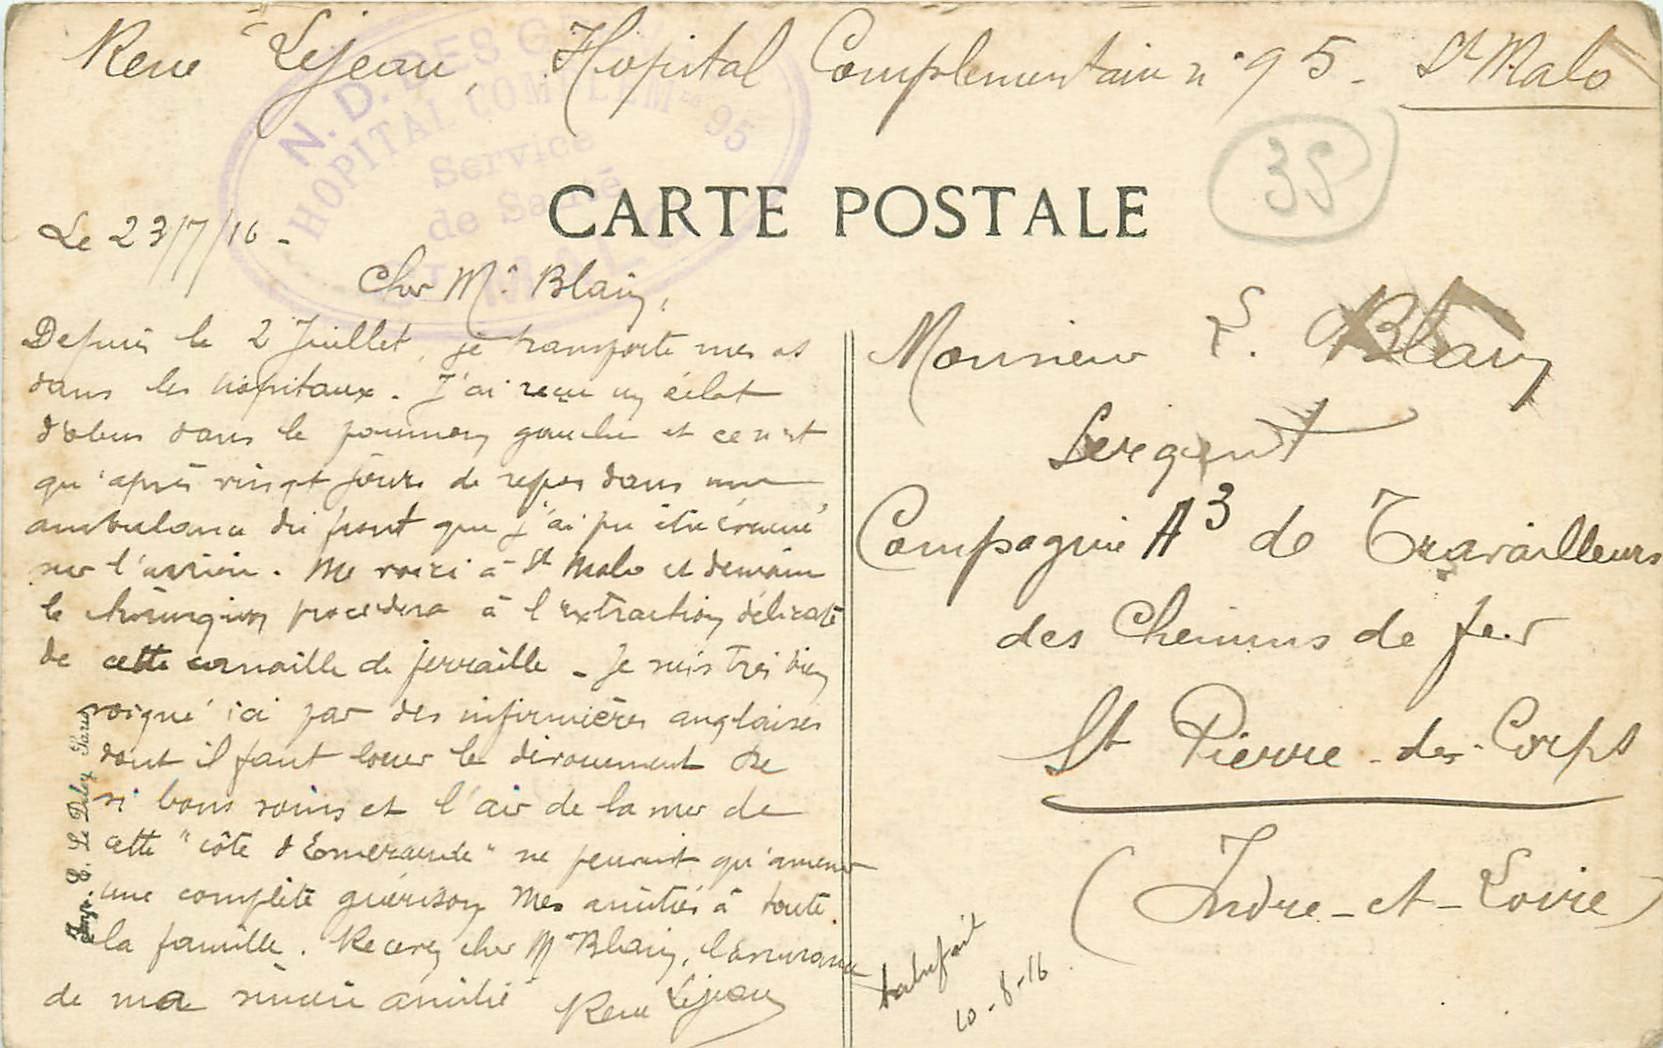 René Lejeau, Hopital Complementaire n° 95 - St Malo
N. D. DES G
HOPITAL COMPLEMre 95
Service
de Santé
ST MALO
35
CARTE POSTALE
Le 23/7/16 -
Cher Mr Blain,
Depuis le 2 Juillet, je transporte mes os
dans les hôpitaux. J'ai reçu un éclat
d'obus dans le poumon gauche et ce n'est
qu'après vingt jours de repos dans une
ambulance du front que j'ai pu être évacué
sur l'arrière. Me voici à St Malo et demain
le chirurgien procédera à l'extraction délicate
de cette canaille de ferraille - Je suis très bien
soigné ici par des infirmières anglaises
dont il faut louer le dévouement De
si bons soins et l'air de la mer de
cette "côte d'Emeraude" ne peuvent qu'amener
une complète guérison Mes amitiés à toute
la famille. Recevez cher Mr Blain, l'assurance
de ma sincère amitié René Lejeau
Imp. E. Le Deley Paris
Monsieur L. Blain
Sergent
Compagnie A3 de Travailleurs
des Chemins de fer
St Pierre-des-Corps
(Indre-et-Loire)
10-8-16